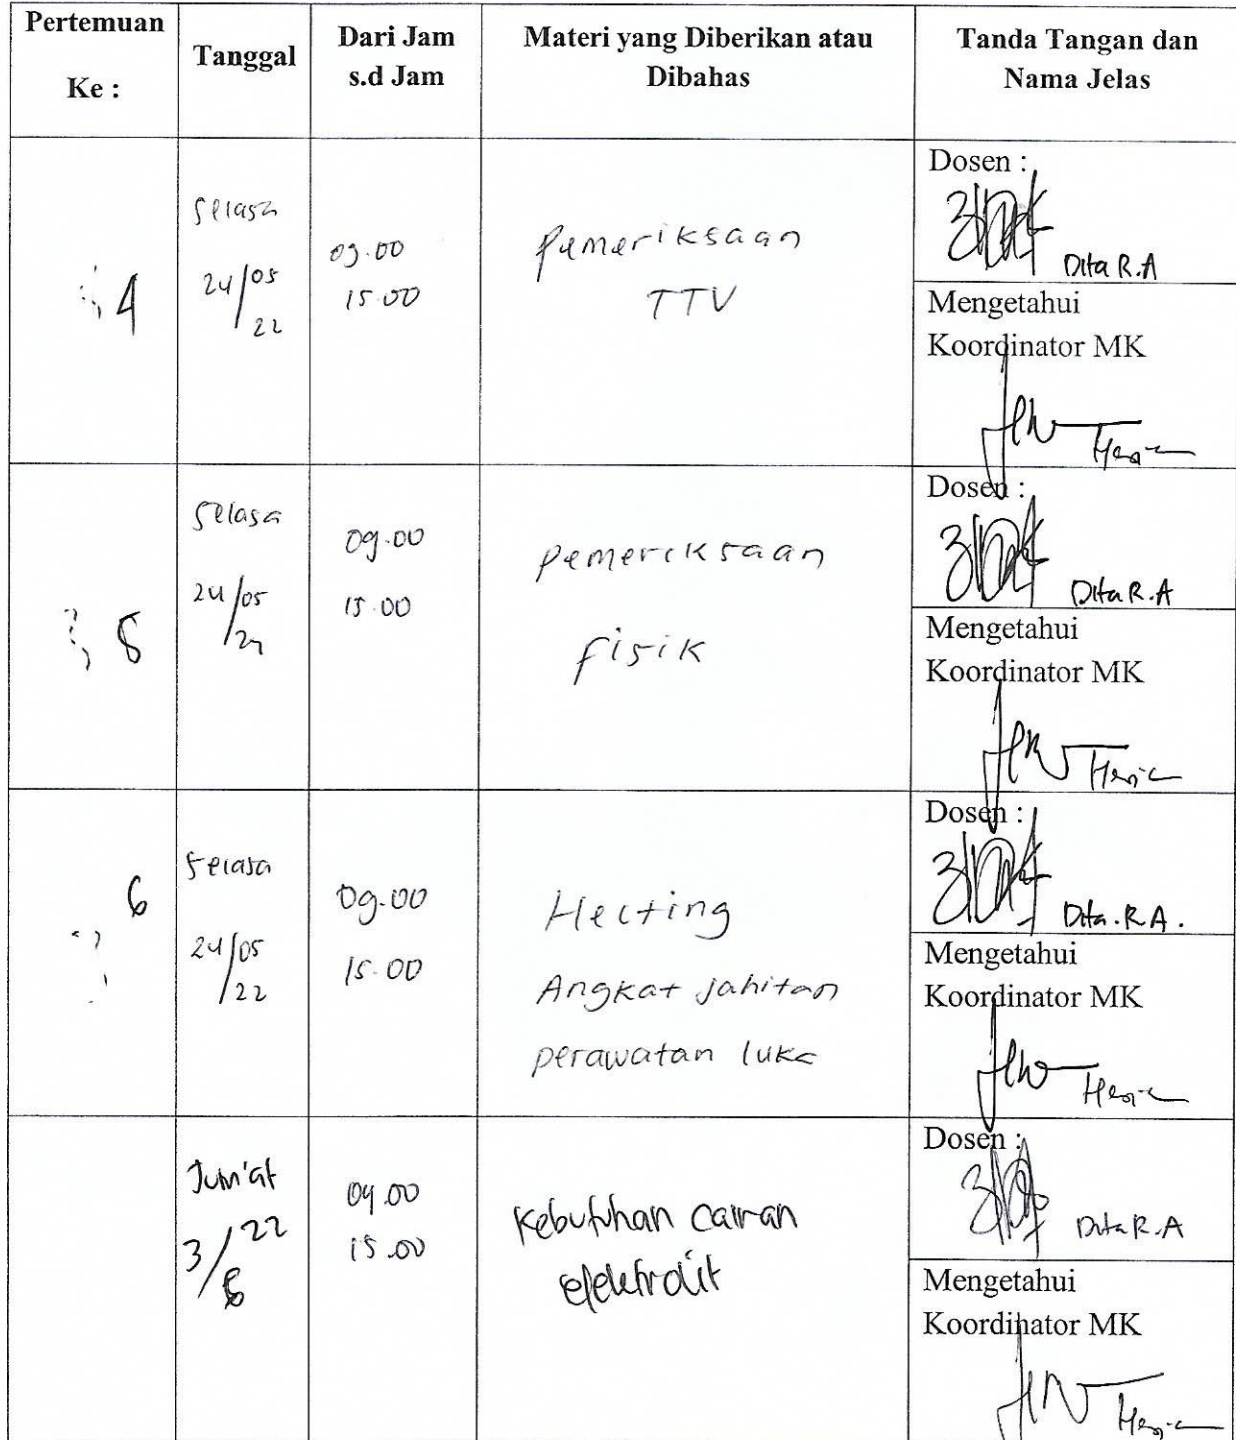 Pertemuan
Ke :
Tanggal
Dari Jam
s.d Jam
Materi yang Diberikan atau
Dibahas
Tanda Tangan dan
Nama Jelas
4
Selasa
24/05
22
09.00
15.00
Pemeriksaan
TTV
Dosen :
Dita R.A
Mengetahui
Koordinator MK
5
Selasa
24/05
09.00
15.00
Pemeriksaan
fisik
Dosen :
Dita R.A
Mengetahui
Koordinator MK
6
Selasa
24/05
22
09.00
15.00
Hecting
Angkat jahitan
perawatan luka
Dosen :
Dita.R.A.
Mengetahui
Koordinator MK
Jum'at
3/22
6
09.00
15.00
Kebutuhan cairan
elektrolit
Dosen :
Dita R.A
Mengetahui
Koordinator MK